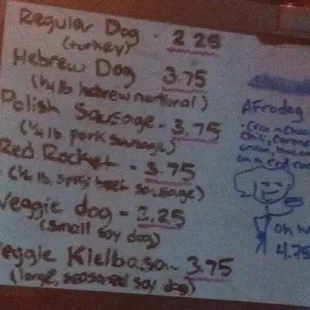 Regular Dog - 2.25
(turkey)
Hebrew Dog 3.75
(1/4 lb hebrew national)
Polish Sausage - 3.75
(1/4 lb. pork sausage)
Red Rocket - 3.75
(1/4 lb. spicy beef sausage)
Veggie dog - 3.25
(small soy dog)
Veggie Kielbasa - 3.75
(large, seasoned soy dog)
Afrodog
on a red
oh
4.75